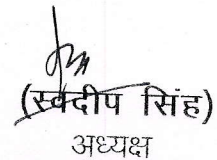 (स्वदीप सिंह)
अध्यक्ष